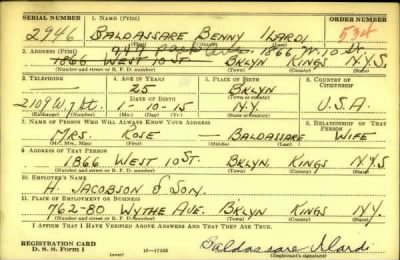 SERIAL NUMBER 1. NAME (Print) ORDER NUMBER
2946 BALDASSARE BENNY ILARDI 534
(First) (Middle) (Last)
2. ADDRESS (Print) 1866 W. 10 St.
1866 WEST 10 ST BKLYN KINGS N.Y.S.
(Number and street or R. F. D. number) (Town) (County) (State)
3. TELEPHONE 4. AGE IN YEARS 5. PLACE OF BIRTH 6. COUNTRY OF CITIZENSHIP
— 25 BKLYN
2109 W. 7 St. DATE OF BIRTH
1-10-15 N.Y. U.S.A.
(Exchange) (Number) (Mo.) (Day) (Yr.) (State or country)
7. NAME OF PERSON WHO WILL ALWAYS KNOW YOUR ADDRESS 8. RELATIONSHIP OF THAT PERSON
MRS. ROSE — BALDASSARE WIFE
(Mr., Mrs., Miss) (First) (Middle) (Last)
9. ADDRESS OF THAT PERSON
1866 WEST 10 ST. BKLYN. KINGS N.Y.S
(Number and street or R. F. D. number) (Town) (County) (State)
10. EMPLOYER'S NAME
H. JACOBSON & SON.
11. PLACE OF EMPLOYMENT OR BUSINESS
762-80 WYTHE AVE. B'KLYN. KINGS N.Y.
(Number and street or R. F. D. number) (Town) (County) (State)
I AFFIRM THAT I HAVE VERIFIED ABOVE ANSWERS AND THAT THEY ARE TRUE.
REGISTRATION CARD
D. S. S. Form 1 (over) Baldassare Ilardi
(Registrant's signature)